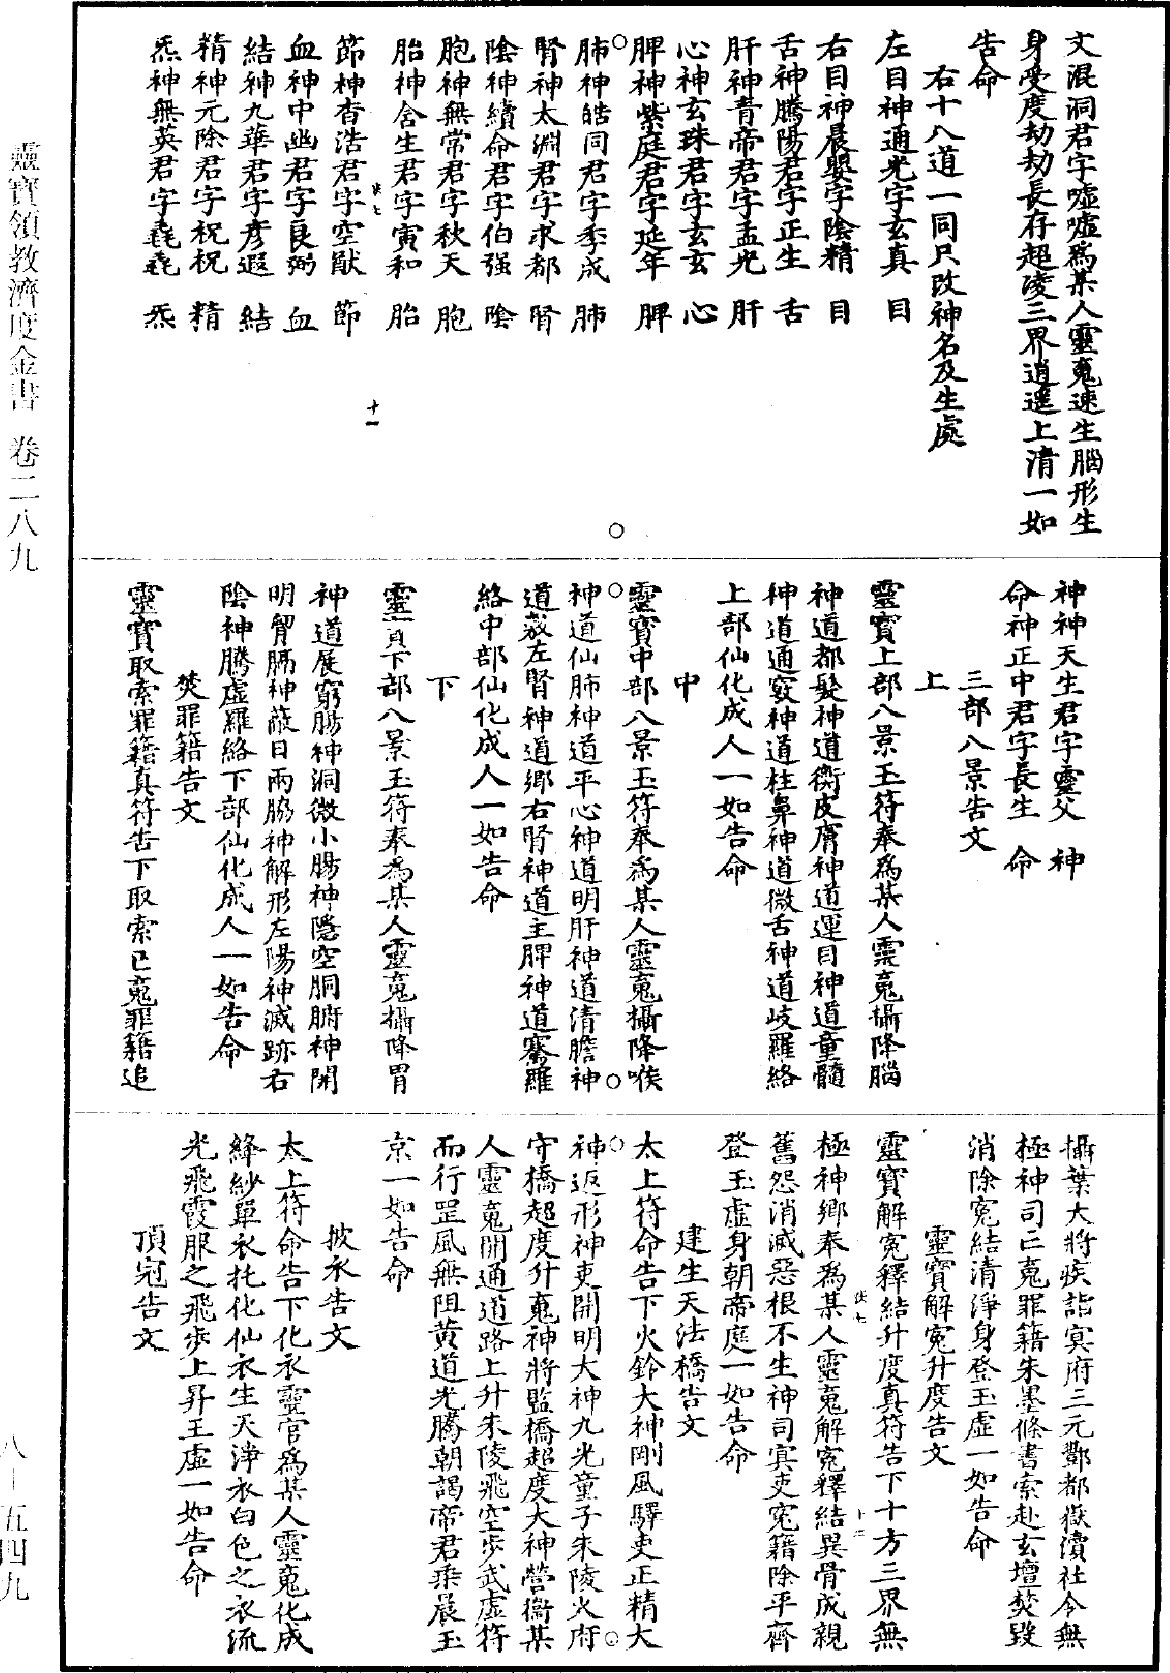 文混洞君字噓噓爲某人靈䰟速生腦形生
身受度劫劫長存超凌三界逍遥上清一如
告命
右十八道一同只改神名及生處
左目神通光字玄真　目
右目神晨嬰字陰精　目
舌神騰陽君字正生　舌
肝神青帝君字孟光　肝
心神玄珠君字玄玄　心
脾神紫庭君字延年　脾
肺神皓同君字季成　肺
腎神太淵君字求都　腎
陰神續命君字伯强　陰
胞神無常君字秋天　胞
胎神含生君字寅和　胎
十一
節神杳浩君字空猷　節
血神中幽君字良弼　血
結神九華君字彦遐　結
精神元除君字祝祝　精
炁神無英君字堯堯　炁
神神天生君字靈父　神
命神正中君字長生　命
三部八景告文
上
靈寶上部八景玉符奉爲某人靈䰟攝降腦
神道都髮神道衡皮膚神道運目神道童髓
神道通䆟神道柱鼻神道微舌神道岐羅絡
上部仙化成人一如告命
中
靈寶中部八景玉符奉爲某人靈䰟攝降喉
神道仙肺神道平心神道明肝神道清膽神
道放左腎神道鄉右腎神道主脾神道騫羅
絡中部仙化成人一如告命
下
靈寶下部八景玉符奉爲某人靈䰟攝降胃
神道展窮腸神洞微小腸神隱空胴腑神開
明胷膈神蔽日兩脇神解形左陽神滅跡右
陰神騰虚羅絡下部仙化成人一如告命
焚罪籍告文
靈寶取索罪籍真符告下取索亡䰟罪籍追
攝葉大將疾詣㝠府三元酆都嶽瀆社令無
極神司亡䰟罪籍朱墨條書索赴玄壇焚毀
消除寃結清淨身登玉虚一如告命
靈寶解寃升度告文
靈寶解寃釋結升度真符告下十方三界無
極神鄉奉爲某人靈䰟解寃釋結異骨成親
舊怨消滅惡根不生神司㝠吏寃籍除平齊
登玉虚身朝帝庭一如告命
建生天法橋告文
太上符命告下火鈴大神剛風驛吏正精大
神返形神吏開明大神九光童子朱陵火府
守橋超度升䰟神將監橋超度大神營衛某
人靈䰟開通道路上升朱陵飛空步武虚符
而行罡風無阻黄道光騰朝謁帝君乘晨玉
京一如告命
披衣告文
太上符命告下化衣靈官爲某人靈䰟化成
絳紗單衣托化仙衣生天淨衣白色之衣流
光飛霞服之飛步上昇玉虚一如告命
頂冠告文
靈寶領教濟度金書　卷二八九
八－五四九